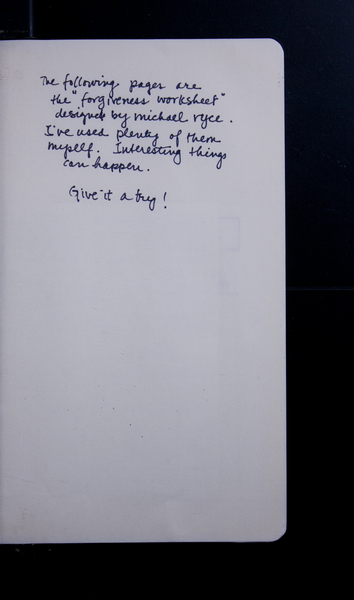 The following pages are
the "forgiveness worksheet"
designed by michael ryce.
I've used plenty of them
myself. Interesting things
can happen.
Give it a try!